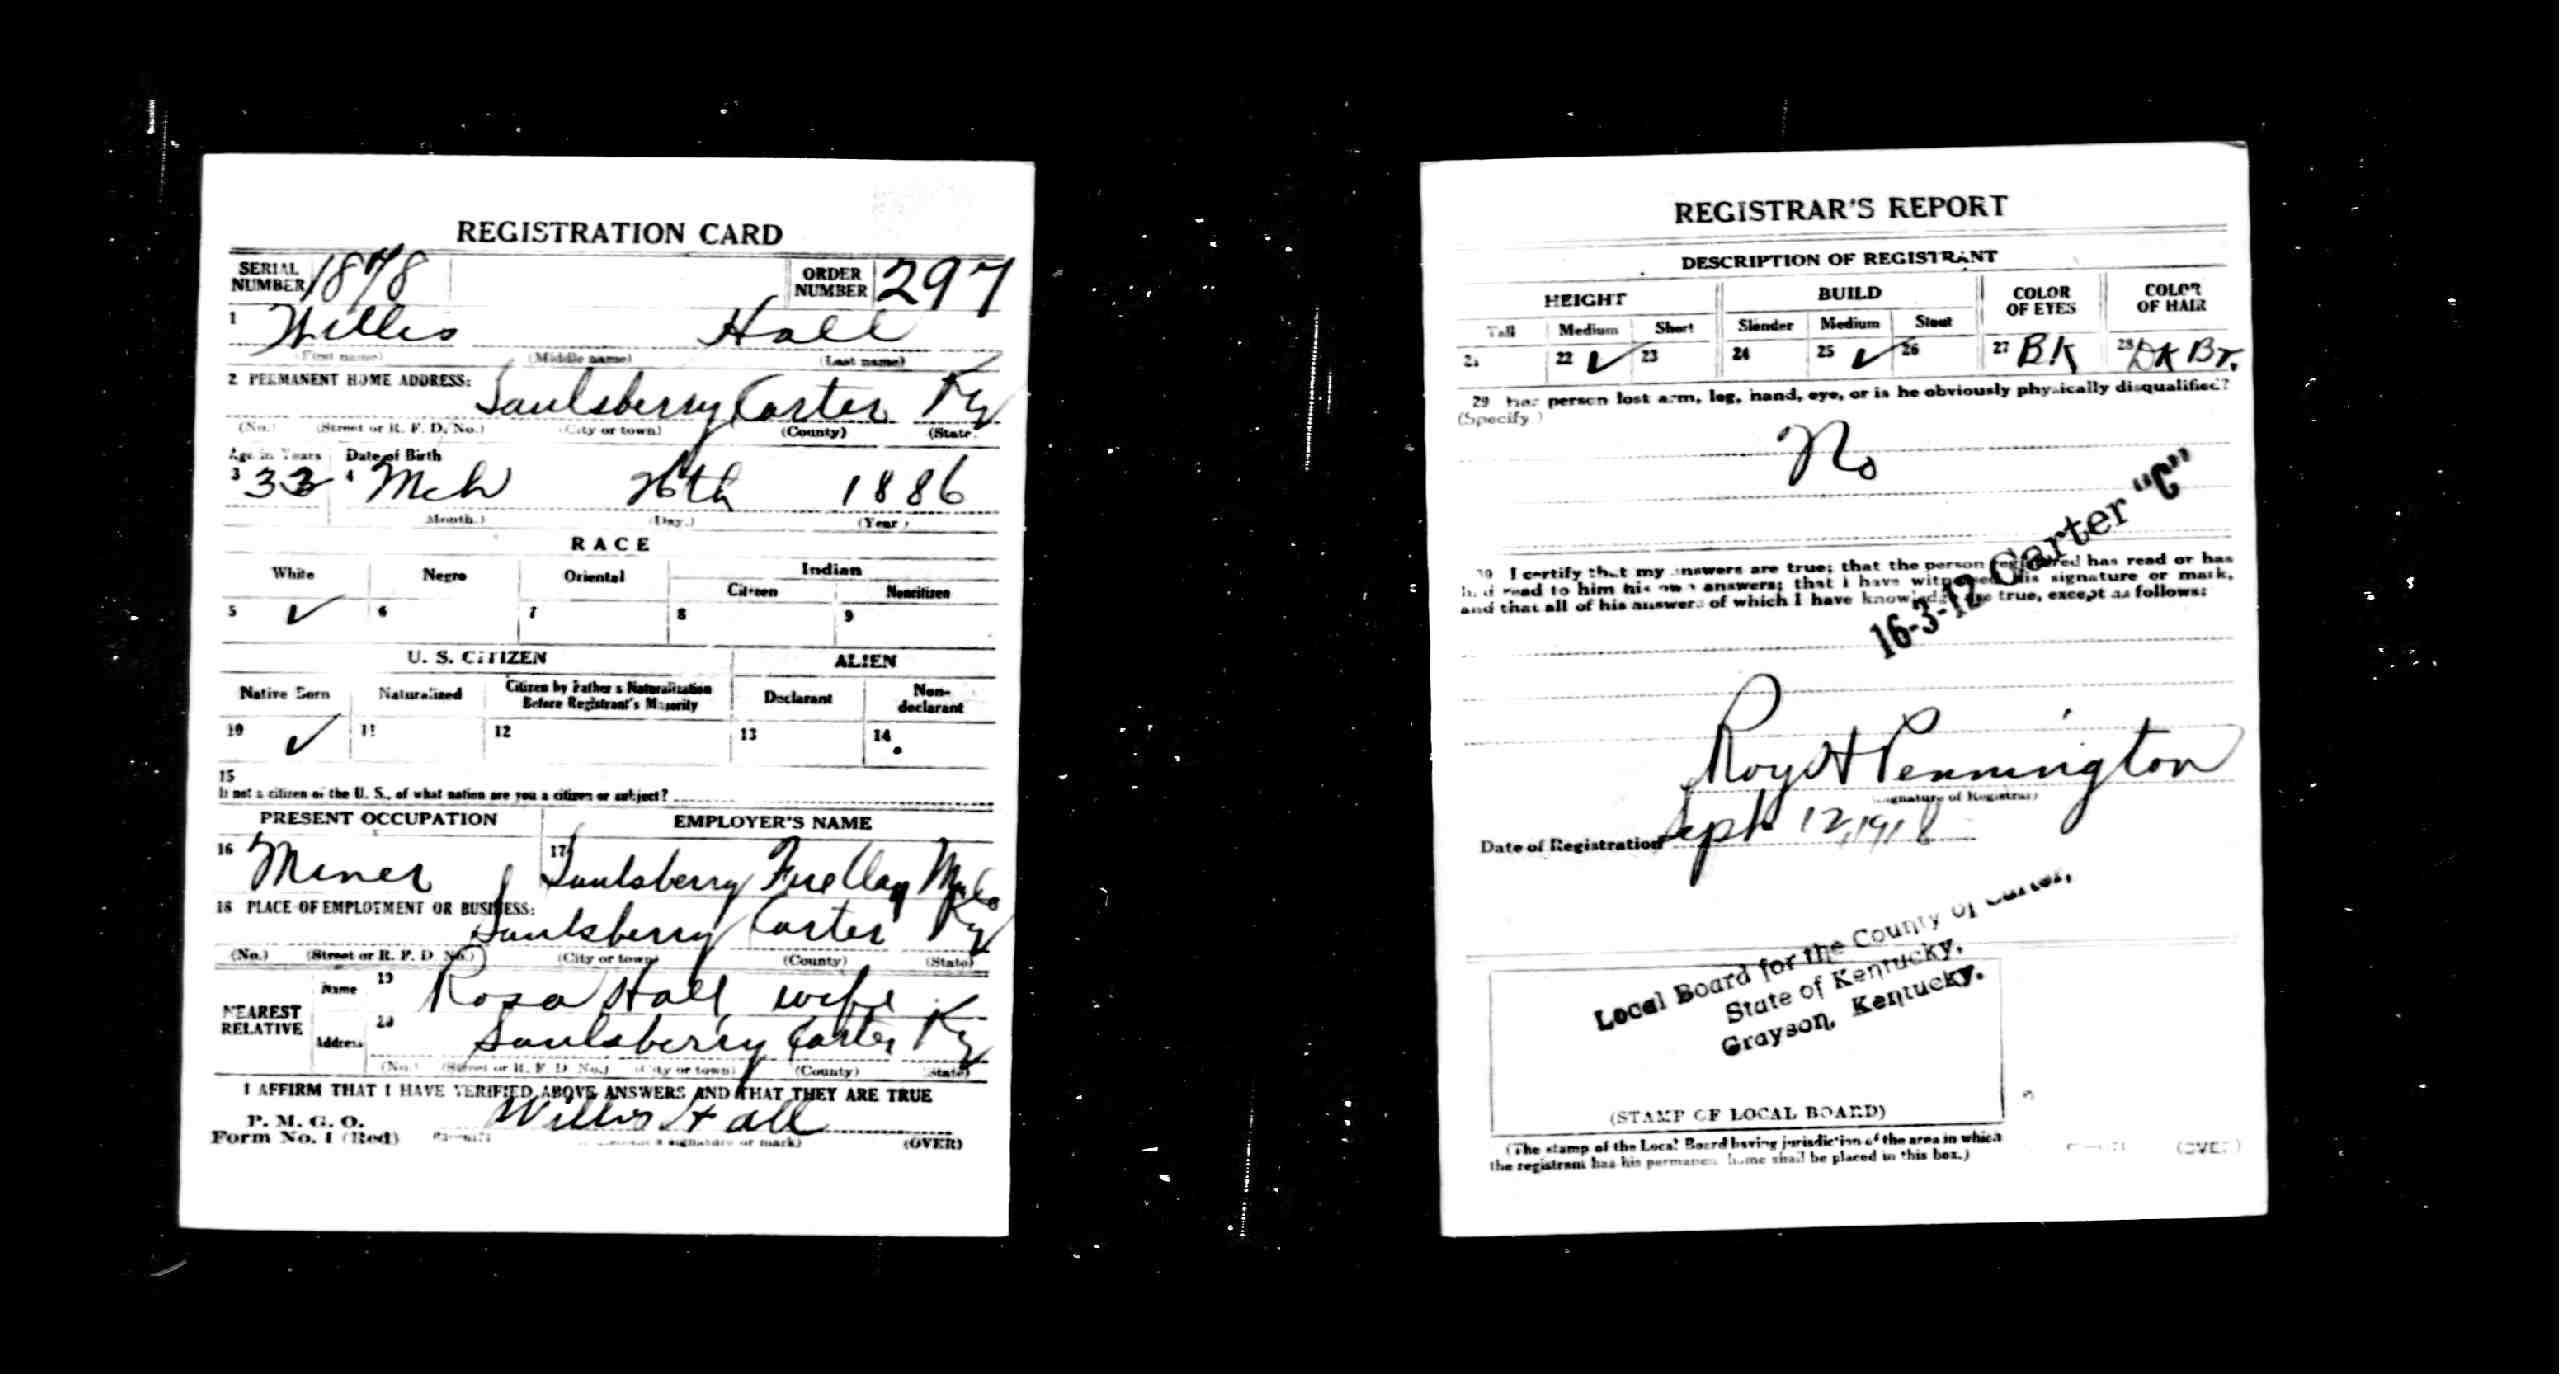 REGISTRATION CARD
SERIAL NUMBER 1878 ORDER NUMBER 297
1 Willis Hall
(First name) (Middle name) (Last name)
2 PERMANENT HOME ADDRESS: Saulsberry Carter Ky
(No.) (Street or R. F. D. No.) (City or town) (County) (State)
Age in Years Date of Birth
3 32 4 Mch 26th 1886
(Month.) (Day.) (Year.)
RACE
White Negro Oriental Indian
Citizen Noncitizen
5 ✓ 6 7 8 9
U. S. CITIZEN ALIEN
Native Born Naturalized Citizen by Father's Naturalization Before Registrant's Majority Declarant Non-declarant
10 ✓ 11 12 13 14
15
If not a citizen of the U. S., of what nation are you a citizen or subject?
PRESENT OCCUPATION EMPLOYER'S NAME
16 Miner 17 Saulsberry Fire Clay
18 PLACE OF EMPLOYMENT OR BUSINESS:
Saulsberry Carter Ky
(No.) (Street or R. F. D. No.) (City or town) (County) (State)
NEAREST RELATIVE
Name 19 Rosa Hall wife
Address 20 Saulsberry Carter Ky
(No.) (Street or R. F. D. No.) (City or town) (County) (State)
I AFFIRM THAT I HAVE VERIFIED ABOVE ANSWERS AND THAT THEY ARE TRUE
P. M. G. O.
Form No. 1 (Red) Willis Hall
signature or mark) (OVER)
REGISTRAR'S REPORT
DESCRIPTION OF REGISTRANT
HEIGHT BUILD COLOR OF EYES COLOR OF HAIR
Tall Medium Short Slender Medium Stout
21 22 ✓ 23 24 25 ✓ 26 27 BK 28 DK Br.
29 Has person lost arm, leg, hand, eye, or is he obviously physically disqualified?
(Specify.)
No
16-3-12 Carter "C"
30 I certify that my answers are true; that the person registered has read or has
had read to him his own answers; that I have witnessed his signature or mark,
and that all of his answers of which I have knowledge are true, except as follows:
Roy H Pennington
(Signature of Registrar)
Date of Registration Sept 12, 1918
Local Board for the County of Carter,
State of Kentucky,
Grayson, Kentucky.
(STAMP OF LOCAL BOARD)
(The stamp of the Local Board having jurisdiction of the area in which
the registrant has his permanent home shall be placed in this box.)
(OVER)